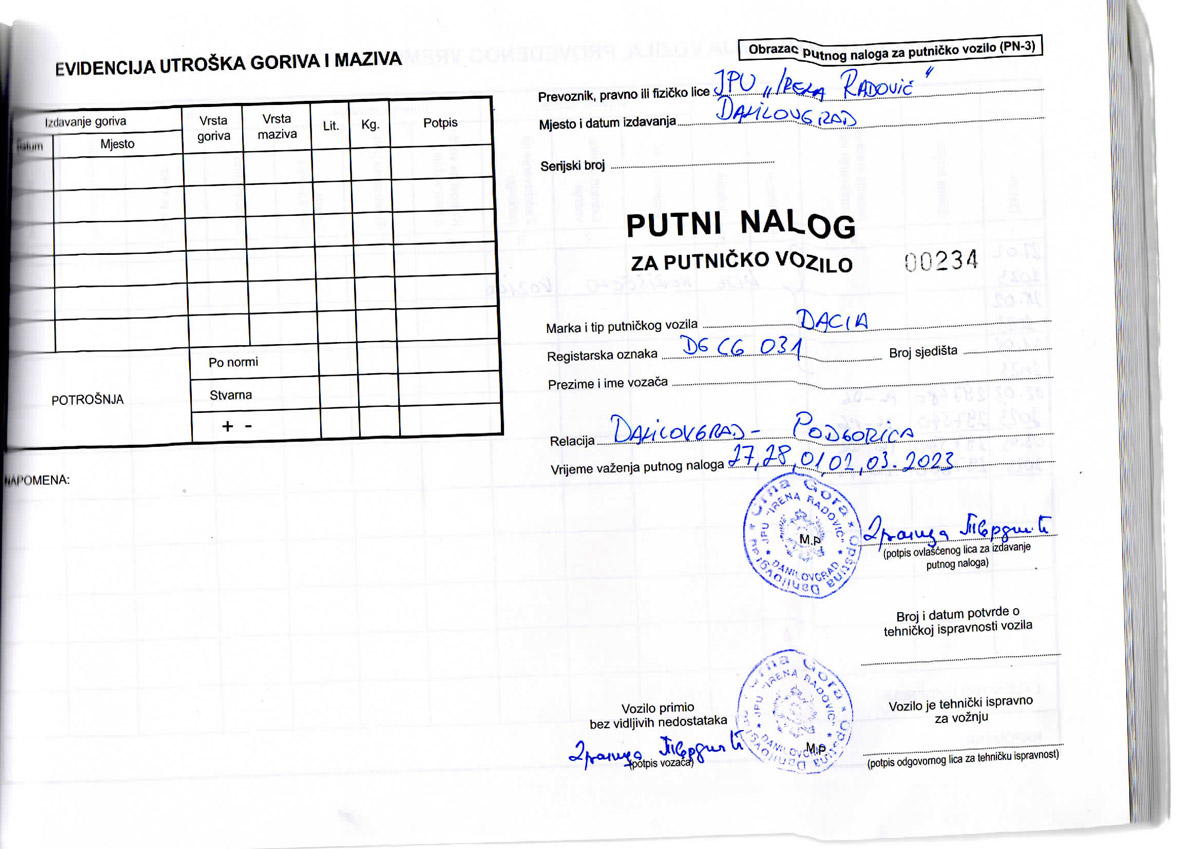 EVIDENCIJA UTROŠKA GORIVA I MAZIVA
Izdavanje goriva
Datum
Mjesto
Vrsta goriva
Vrsta maziva
Lit.
Kg.
Potpis
POTROŠNJA
Po normi
Stvarna
+ -
NAPOMENA:
Obrazac putnog naloga za putničko vozilo (PN-3)
Prevoznik, pravno ili fizičko lice JPU „Irena Radović"
Mjesto i datum izdavanja DANILOVGRAD
Serijski broj
PUTNI NALOG
ZA PUTNIČKO VOZILO 00234
Marka i tip putničkog vozila DACIA
Registarska oznaka DG CG 031 Broj sjedišta
Prezime i ime vozača
Relacija DANILOVGRAD - PODGORICA
Vrijeme važenja putnog naloga 27,28,01,02,03.2023
Crna Gora * Opština Danilovgrad *
JPU "IRENA RADOVIĆ" * DANILOVGRAD *
M.P
(potpis ovlašćenog lica za izdavanje
putnog naloga)
Broj i datum potvrde o
tehničkoj ispravnosti vozila
Vozilo primio
bez vidljivih nedostataka
(potpis vozača)
Crna Gora * Opština Danilovgrad *
JPU "IRENA RADOVIĆ" * DANILOVGRAD *
M.P
Vozilo je tehnički ispravno
za vožnju
(potpis odgovornog lica za tehničku ispravnost)